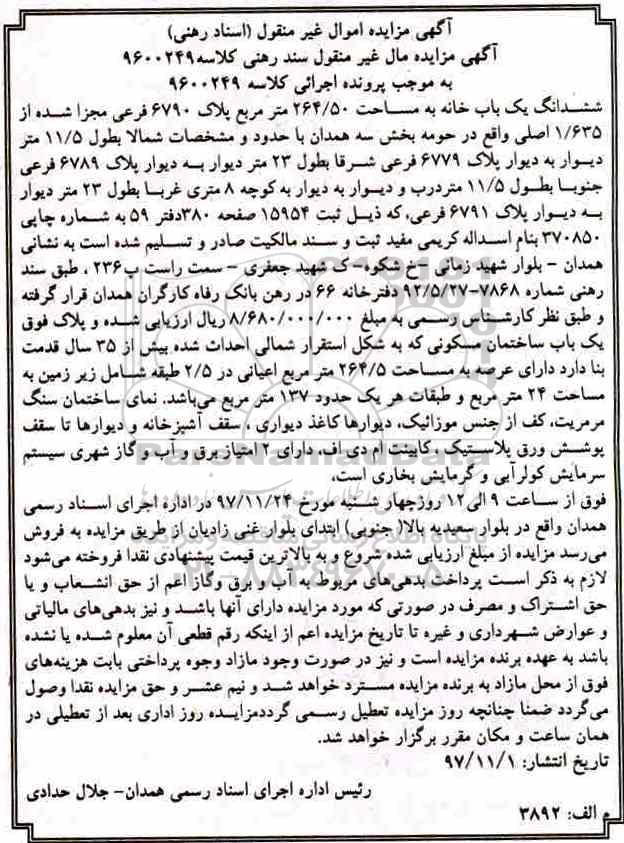 آگهی مزایده اموال غیر منقول (اسناد رهنی)
آگهی مزایده مال غیر منقول سند رهنی کلاسه ۹۶۰۰۲۴۹
به موجب پرونده اجرائی کلاسه ۹۶۰۰۲۴۹
ششدانگ یک باب خانه به مساحت ۲۶۴/۵۰ متر مربع پلاک ۶۷۹۰ فرعی مجزا شده از
۱/۶۳۵ اصلی واقع در حومه بخش سه همدان با حدود و مشخصات شمالا بطول ۱۱/۵ متر
دیوار به دیوار پلاک ۶۷۷۹ فرعی شرقا بطول ۲۳ متر دیوار به دیوار پلاک ۶۷۸۹ فرعی
جنوبا بطول ۱۱/۵ متردرب و دیوار به دیوار به کوچه ۸ متری غربا بطول ۲۳ متر دیوار
به دیوار پلاک ۶۷۹۱ فرعی، که ذیل ثبت ۱۵۹۵۴ صفحه ۳۸۰دفتر ۵۹ به شماره چاپی
۳۷۰۸۵۰ بنام اسداله کریمی مفید ثبت و سند مالکیت صادر و تسلیم شده است به نشانی
همدان - بلوار شهید زمانی -خ شکوه- ک شهید جعفری - سمت راست پ۲۳۶ ، طبق سند
رهنی شماره ۷۸۶۸-۹۲/۵/۲۷ دفترخانه ۶۶ در رهن بانک رفاه کارگران همدان قرار گرفته
و طبق نظر کارشناس رسمی به مبلغ ۸/۶۸۰/۰۰۰/۰۰۰ ریال ارزیابی شده و پلاک فوق
یک باب ساختمان مسکونی که به شکل استقرار شمالی احداث شده بیش از ۳۵ سال قدمت
بنا دارد دارای عرصه به مساحت ۲۶۴/۵ متر مربع اعیانی در ۲/۵ طبقه شامل زیر زمین به
مساحت ۲۴ متر مربع و طبقات هر یک حدود ۱۳۷ متر مربع می‌باشد. نمای ساختمان سنگ
مرمریت، کف از جنس موزائیک، دیوارها کاغذ دیواری ، سقف آشپزخانه و دیوارها تا سقف
پوشش ورق پلاستیک ، کابینت ام دی اف، دارای ۲ امتیاز برق و آب و گاز شهری سیستم
سرمایش کولرآبی و گرمایش بخاری است،
فوق از ساعت ۹ الی۱۲ روزچهار شنبه مورخ ۹۷/۱۱/۲۴ در اداره اجرای اسناد رسمی
همدان واقع در بلوار سعیدیه بالا( جنوبی) ابتدای بلوار غنی زادیان از طریق مزایده به فروش
می‌رسد مزایده از مبلغ ارزیابی شده شروع و به بالاترین قیمت پیشنهادی نقدا فروخته می‌شود
لازم به ذکر است پرداخت بدهی‌های مربوط به آب و برق وگاز اعم از حق انشعاب و یا
حق اشتراک و مصرف در صورتی که مورد مزایده دارای آنها باشد و نیز بدهی‌های مالیاتی
و عوارض شهرداری و غیره تا تاریخ مزایده اعم از اینکه رقم قطعی آن معلوم شده یا نشده
باشد به عهده برنده مزایده است و نیز در صورت وجود مازاد وجوه پرداختی بابت هزینه‌های
فوق از محل مازاد به برنده مزایده مسترد خواهد شد و نیم عشر و حق مزایده نقدا وصول
می‌گردد ضمنا چنانچه روز مزایده تعطیل رسمی گرددمزایده روز اداری بعد از تعطیلی در
همان ساعت و مکان مقرر برگزار خواهد شد.
تاریخ انتشار: ۹۷/۱۱/۱
رئیس اداره اجرای اسناد رسمی همدان- جلال حدادی
م الف: ۳۸۹۲
ParsNamadData